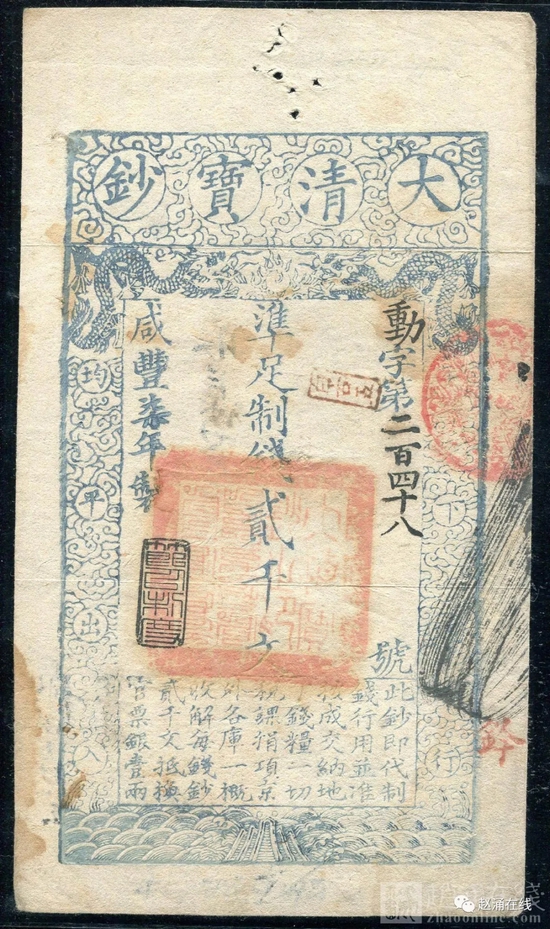 大清寶鈔
動字第二百四十八號
準足制錢貳千文
咸豐柒年製
下
行
均平出入
節以制度
此鈔即代制
錢行用並准
按成交納地
丁錢糧一切
稅課捐項京
外各庫一概
收解每錢鈔
貳千文抵換
官票銀壹兩
赵涌在线
zhaoonline.com
赵涌在线